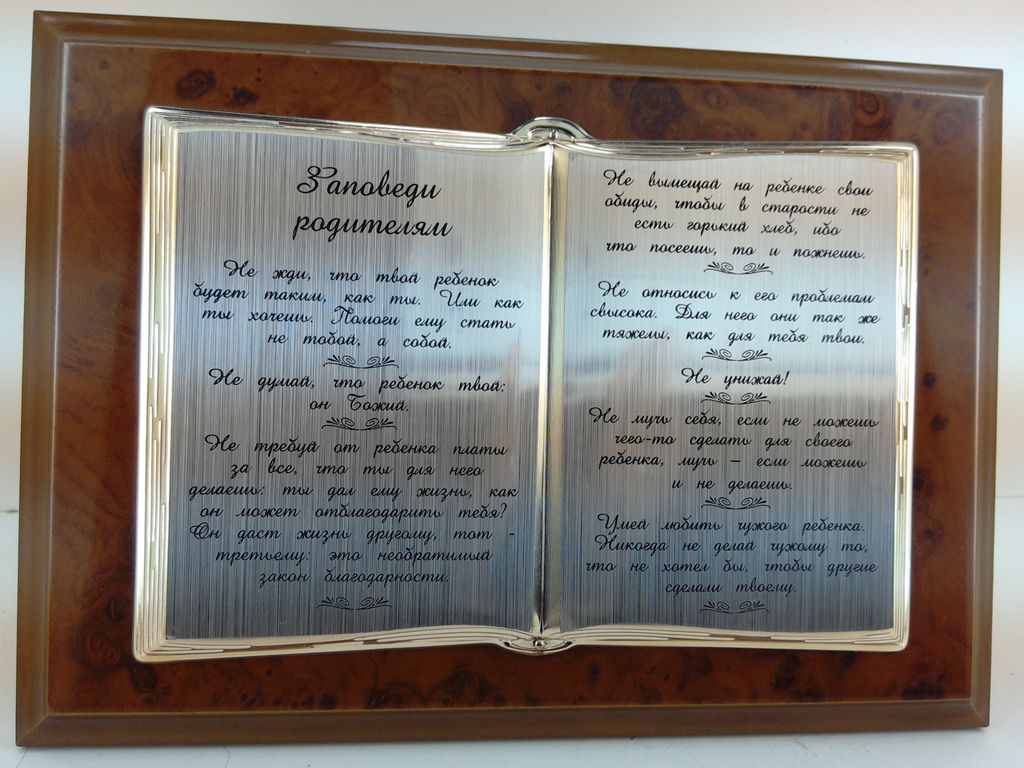 Заповеди
родителям
Не жди, что твой ребенок
будет таким, как ты. Или как
ты хочешь. Помоги ему стать
не тобой, а собой.
Не думай, что ребенок твой:
он Божий.
Не требуй от ребенка платы
за все, что ты для него
делаешь: ты дал ему жизнь, как
он может отблагодарить тебя?
Он даст жизнь другому, тот -
третьему: это необратимый
закон благодарности.
Не вымещай на ребенке свои
обиды, чтобы в старости не
есть горький хлеб, ибо
что посеешь, то и пожнешь.
Не относись к его проблемам
свысока. Для него они так же
тяжелы, как для тебя твои.
Не унижай!
Не мучь себя, если не можешь
чего-то сделать для своего
ребенка, мучь – если можешь
и не делаешь.
Умей любить чужого ребенка.
Никогда не делай чужому то,
что не хотел бы, чтобы другие
сделали твоему.